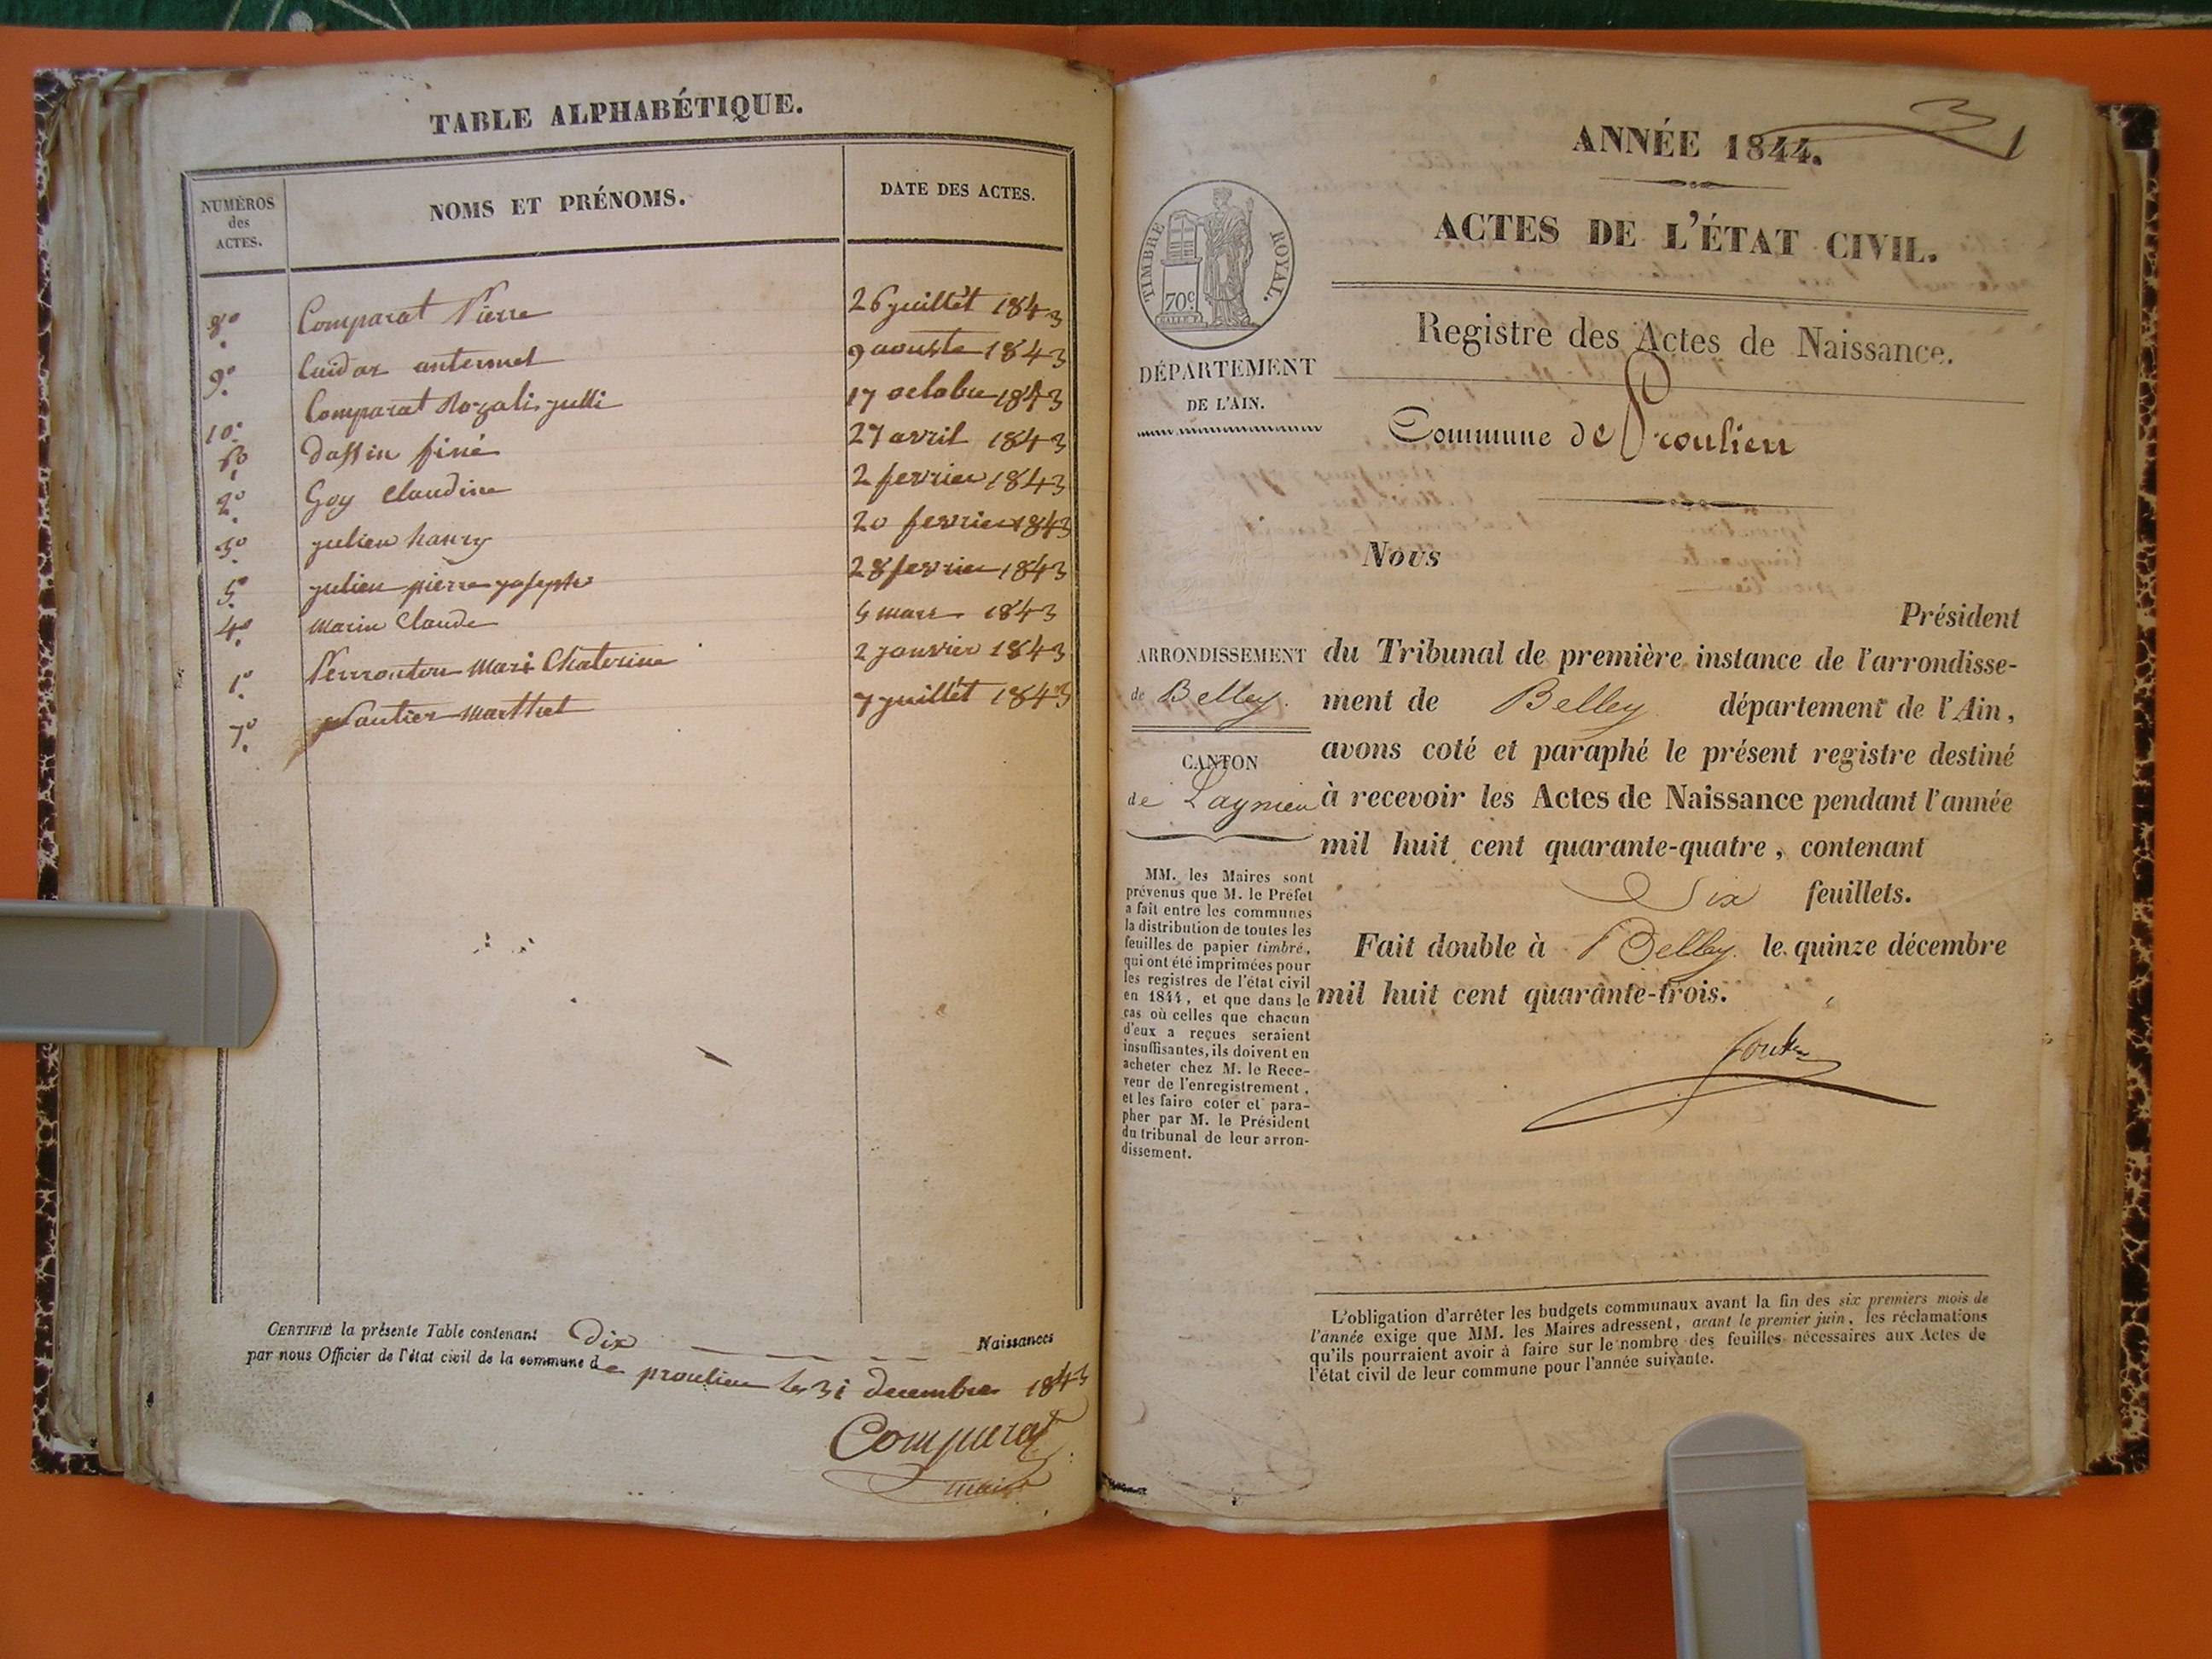 TABLE ALPHABÉTIQUE.
NUMÉROS des ACTES. NOMS ET PRÉNOMS. DATE DES ACTES.
8º Comparat Pierre 26 juillét 1843
9º antermet 9 aouste 1843
10º Comparat Rozali julli 17 octobre 1843
6º finé 27 avril 1843
2º Goy Claudine 2 fevrier 1843
3º julien hanry 20 fevrier 1843
5º julien pierre joseph 28 fevrier 1843
4º Marin Claude mars 1843
1º Mari Chaterine 2 janvier 1843
7º Marthet 7 juillét 1843
CERTIFIÉ la présente Table contenant Dix Naissances
par nous Officier de l'état civil de la commune de proulieu le 31 decembre 1843
Comparat
maire
1
ANNÉE 1844.
ACTES DE L'ÉTAT CIVIL.
TIMBRE ROYAL.
70c
Registre des Actes de Naissance.
DÉPARTEMENT
DE L'AIN.
Commune de Proulieu
Nous
Président
ARRONDISSEMENT
de Belley.
CANTON
de Lagnieu
du Tribunal de première instance de l'arrondisse-
ment de Belley département de l'Ain,
avons coté et paraphé le présent registre destiné
à recevoir les Actes de Naissance pendant l'année
mil huit cent quarante-quatre, contenant
Six feuillets.
Fait double à Belley. le quinze décembre
mil huit cent quarante-trois.
MM. les Maires sont
prévenus que M. le Préfet
a fait entre les communes
la distribution de toutes les
feuilles de papier timbré,
qui ont été imprimées pour
les registres de l'état civil
en 1844, et que dans le
cas où celles que chacun
d'eux a reçues seraient
insuffisantes, ils doivent en
acheter chez M. le Rece-
veur de l'enregistrement,
et les faire coter et para-
pher par M. le Président
du tribunal de leur arron-
dissement.
L'obligation d'arrêter les budgets communaux avant la fin des six premiers mois de
l'année exige que MM. les Maires adressent, avant le premier juin, les réclamations
qu'ils pourraient avoir à faire sur le nombre des feuilles nécessaires aux Actes de
l'état civil de leur commune pour l'année suivante.